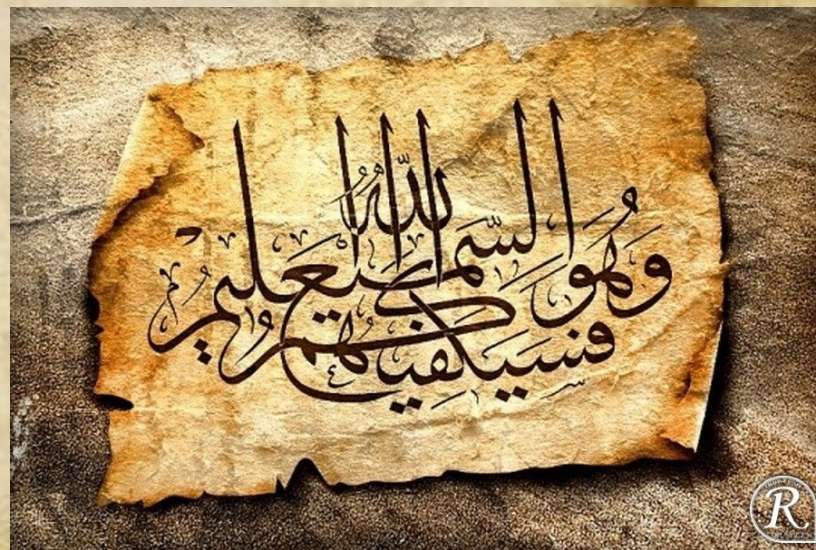 فَسَيَكْفِيكَهُمُ اللّٰهُ
وَهُوَ السَّمِيعُ الْعَلِيمُ
R